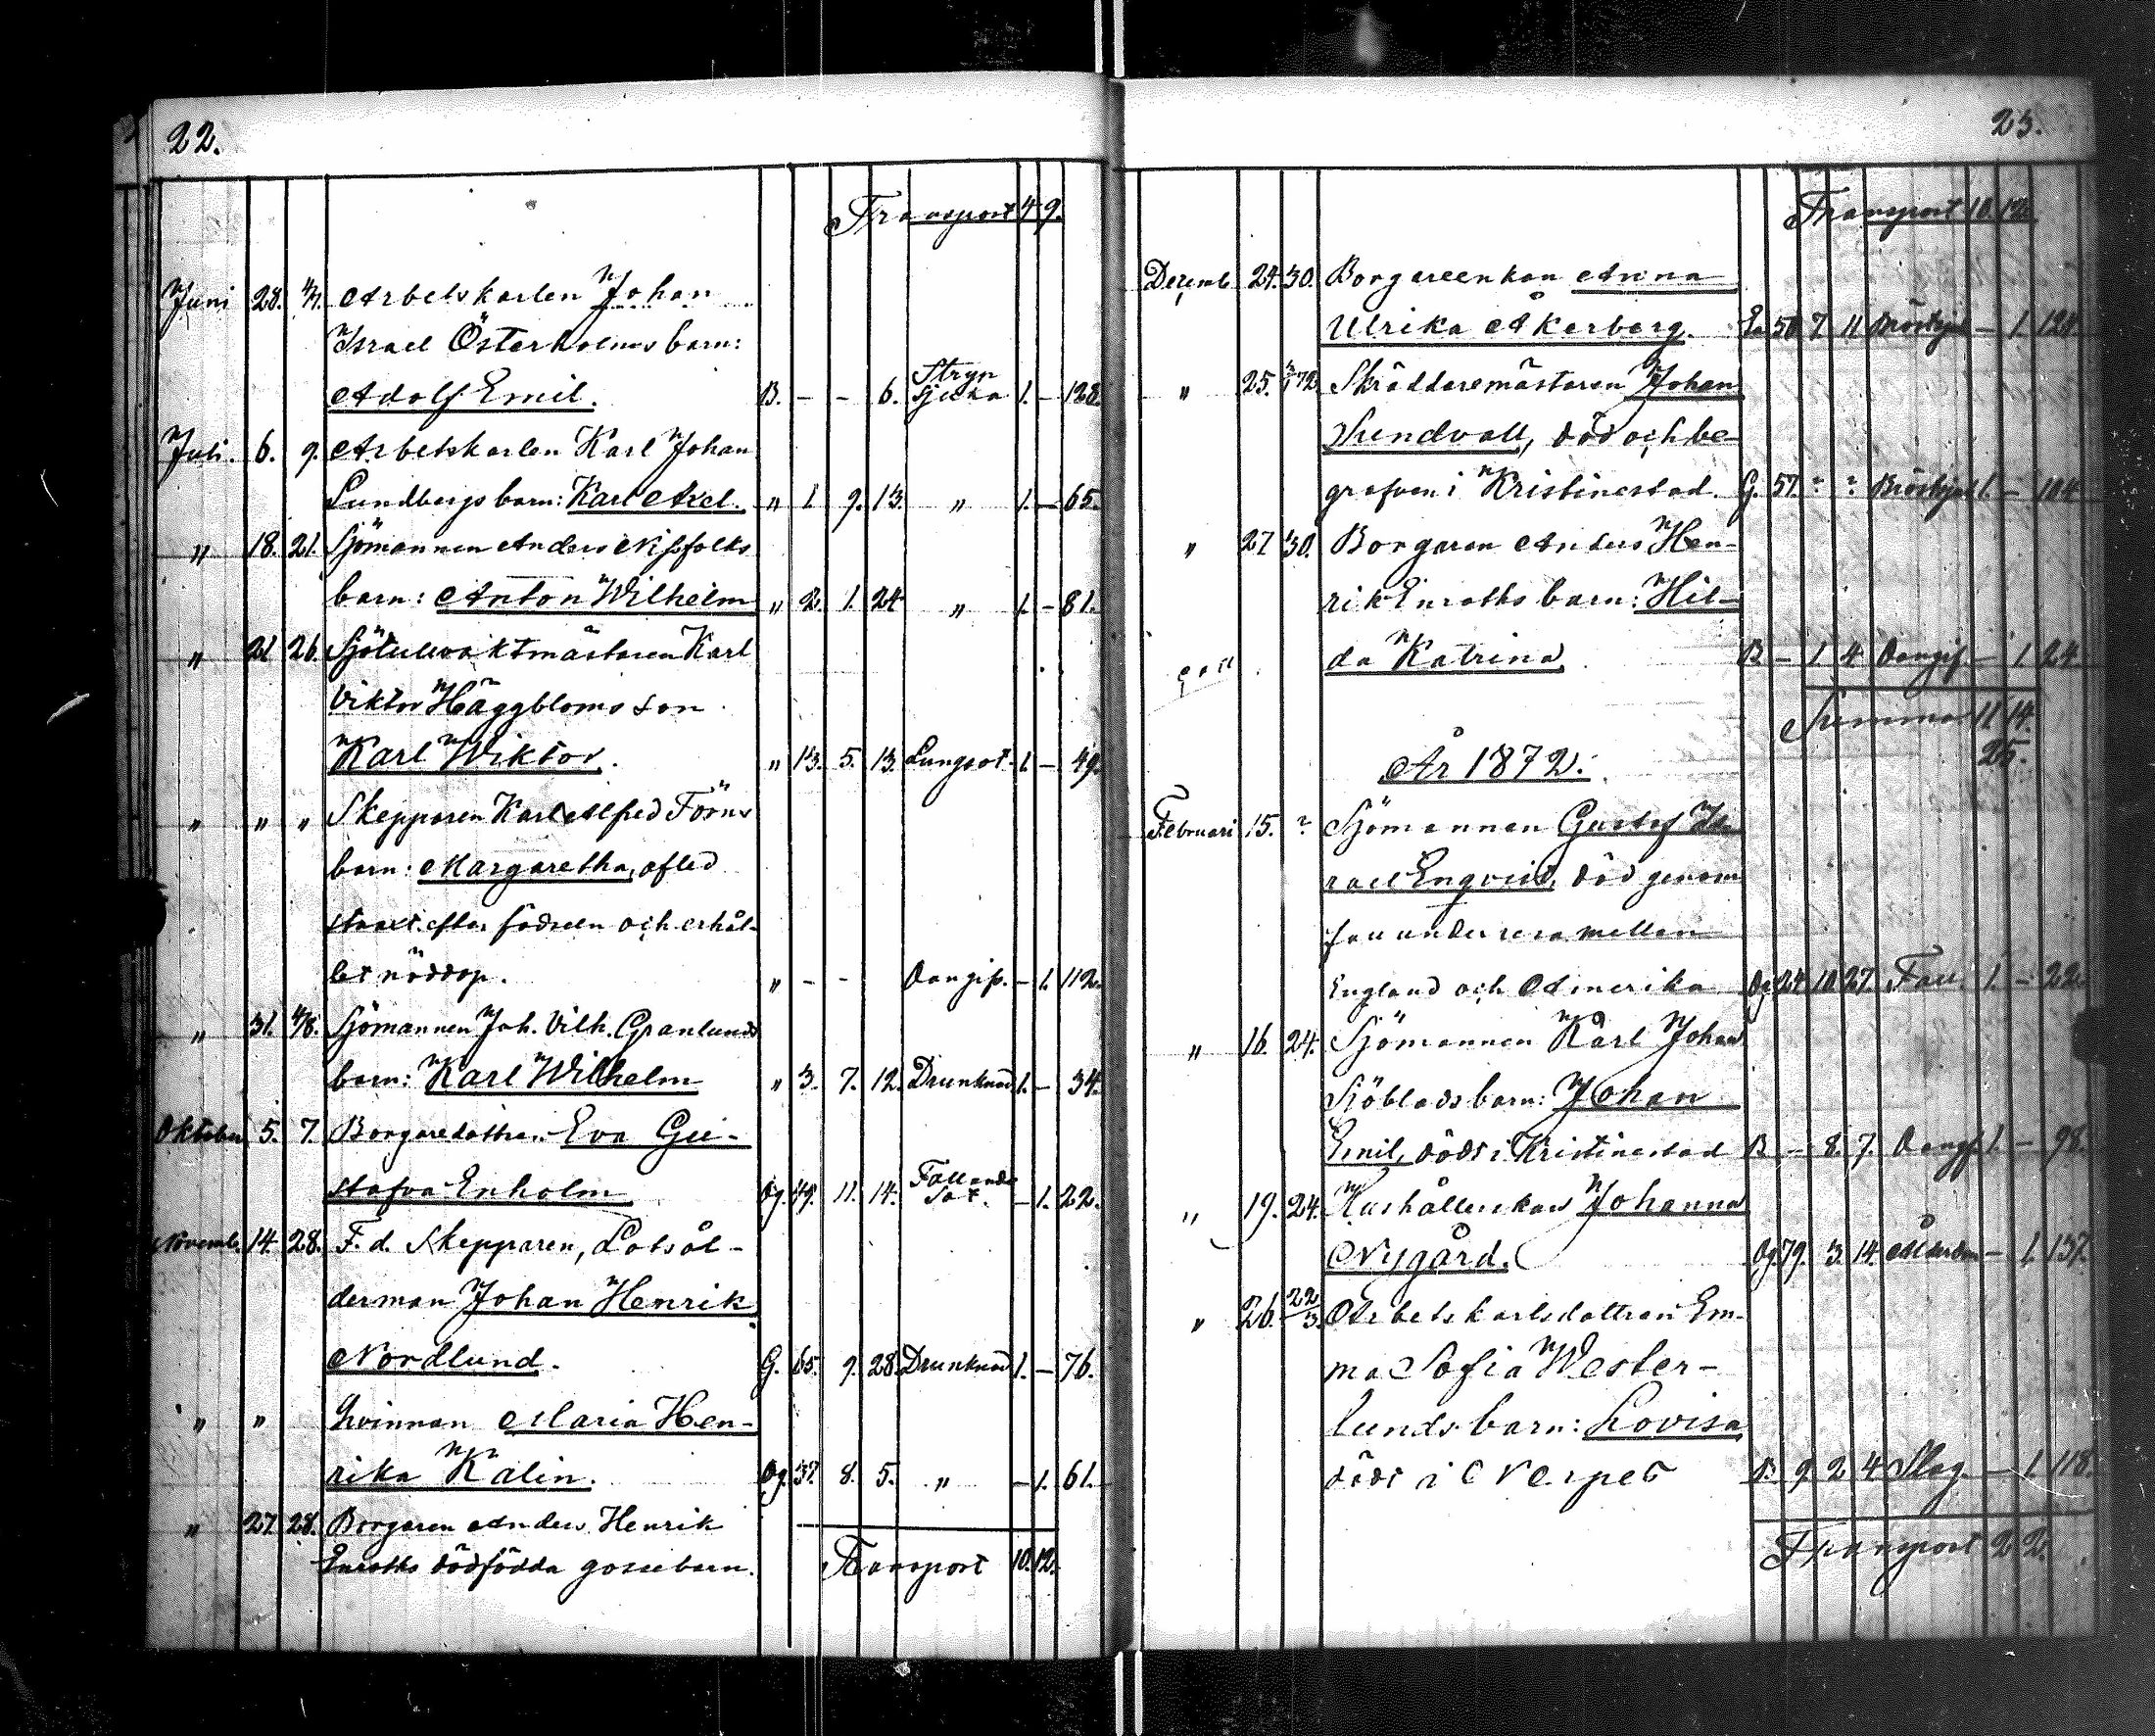 22.
Transport 4 9.
Juni 28. 4/7. Arbetskarlen Johan
Israel Österholms barn:
Stryp
Adolf Emil. B. - - 6. sjuka 1. - 128.
Juli. 6. 9. Arbetskarlen Karl Johan
Lundbergs barn: Karl Axel. " 1. 9. 13. " 1. - 65.
" 18. 21. Sjömannen Anders Nissfolks
barn: Anton Wilhelm " 2. 1. 24 " 1. - 81.
" 21 26. Sjötullvaktmästaren Karl
Viktor Häggbloms son
Karl Wiktor. " 13. 5. 13. Lungsot. 1. - 49.
" " " Skepparen Karl Alfred Förns
barn: Margaretha, afled
straxt efter födseln och erhål-
let nöddop. " - - Oangif. - 1. 112.
" 31. 4/8. Sjömannen Joh. Vilh. Granlunds
barn: Karl Wilhelm " 3. 7. 12. Drunknad 1. - 34.
Oktober 5. 7. Borgaredottren Eva Gu-
Fallande
stafva Enholm Og. 49. 11. 14. sot. - 1. 22.
Novemb. 14. 28. F. d. Skepparen, Lotsål-
derman Johan Henrik
Nordlund. G. 65. 9. 28. Drunknad 1. - 76.
" " Qvinnan Maria Hen-
rika Kalin. Og. 37. 8. 5. " - 1. 61.
" 27. 28. Borgaren Anders Henrik
Enroths dödfödda gossebarn.
Transport 10. 12.
23.
Transport 10. 12.
Dezemb. 24. 30. Borgareenkan Anna
Ulrika Åkerberg. 7 11 - 1. 128.
" 25. Skräddaremästaren Johan
Sundvall, död och be-
grafven i Kristinestad. G. 57. ? ? 1. - 104
" 27 30. Borgaren Anders Hen-
rik Enroths barn: Hil-
da Katrina. B - 1 4 Oangif. - 1. 24.
Summa 11 14.
25.
År 1872.
Februari 15. ? Sjömannen Gustaf Is-
rael Enqvist, död genom
fall under resa mellan
England och Amerika Og 24 10 27. Fall. 1. - 22
" 16. 24. Sjömannen Karl Johan
Sjöblads barn: Johan
Emil, dödt i Kristinestad B - 8. 7. Oangif. 1. - 98.
" 19. 24. Hushållerskan Johanna
Nygård. Og. 79. 3. 14. Ålderdom - 1. 137.
" 26. 22/3. Arbetskarlsdottren Em-
ma Sofia Wester-
lunds barn: Lovisa
dödt i Nerpes B. 9 2 4 Slag. - 1. 118.
Transport 2 2.